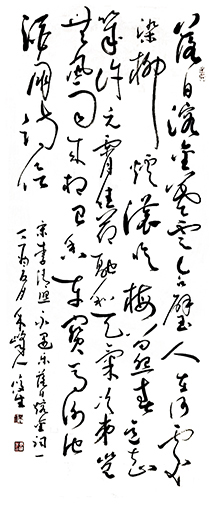 落日溶金暮云合璧人在何处
染柳烟浓吹梅笛怨春意知
几许元宵佳节融和天气次第岂
无风雨来相召香车宝马谢他
酒朋诗侣
宋李清照永遇乐落日熔金词一